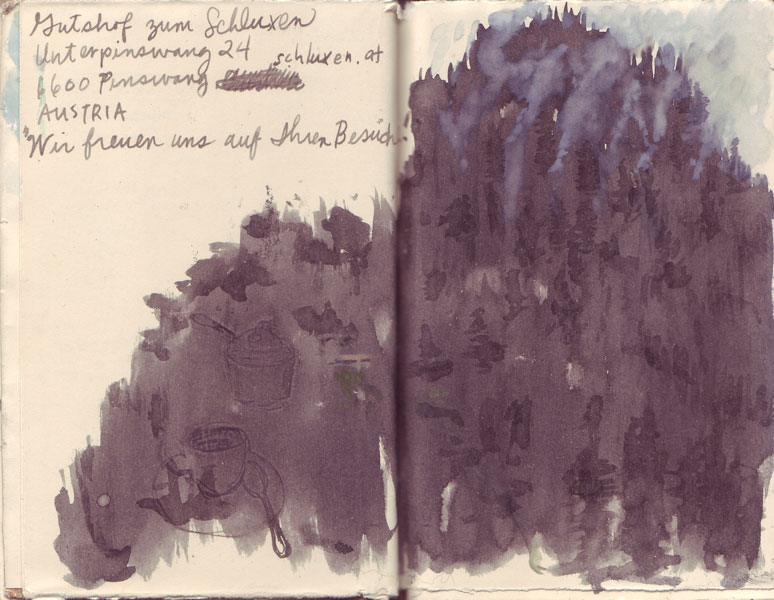 Gutshof zum Schluxen
Unterpinswang 24
schluxen.at
6600 Pinswang
AUSTRIA
"Wir freuen uns auf Ihren Besuch!